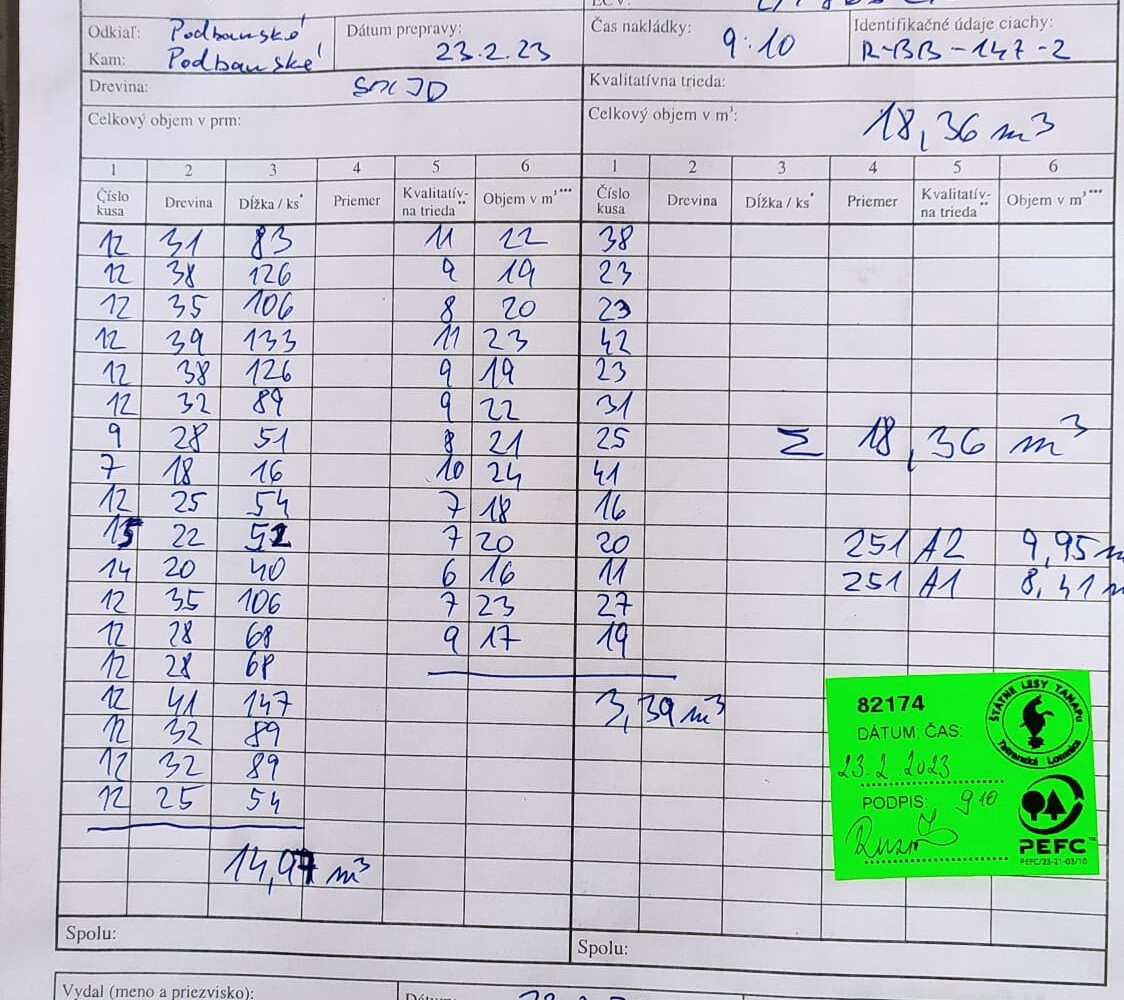 Odkiaľ: Podbanské Dátum prepravy: 23.2.23 Čas nakládky: 9:10 Identifikačné údaje ciachy: R-BB-147-2
Kam: Podbanské
Drevina: SM JD Kvalitatívna trieda:
Celkový objem v prm: Celkový objem v m³: 18,36 m³
1 2 3 4 5 6 1 2 3 4 5 6
Číslo kusa Drevina Dĺžka / ks* Priemer Kvalitatív-na trieda** Objem v m³*** Číslo kusa Drevina Dĺžka / ks* Priemer Kvalitatív-na trieda** Objem v m³***
12 31 83 11 22 38
12 38 126 9 19 23
12 35 106 8 20 23
12 39 133 11 23 42
12 38 126 9 19 23
12 32 89 9 22 31
9 28 51 8 21 25 Σ 18,36 m³
7 18 16 10 24 41
12 25 54 7 18 16
15 22 52 7 20 20 251 A2 9,95 m
14 20 40 6 16 11 251 A1 8,41 m
12 35 106 7 23 27
12 28 68 9 17 19
12 28 68
12 41 147 3,39 m³
12 32 89
12 32 89
12 25 54
14,97 m³
82174
DÁTUM, ČAS:
23.2.2023
PODPIS: 9 10
ŠTÁTNE LESY TANAPU
Tatranská Lomnica
PEFC™
PEFC/23-21-03/10
Spolu: Spolu:
Vydal (meno a priezvisko):